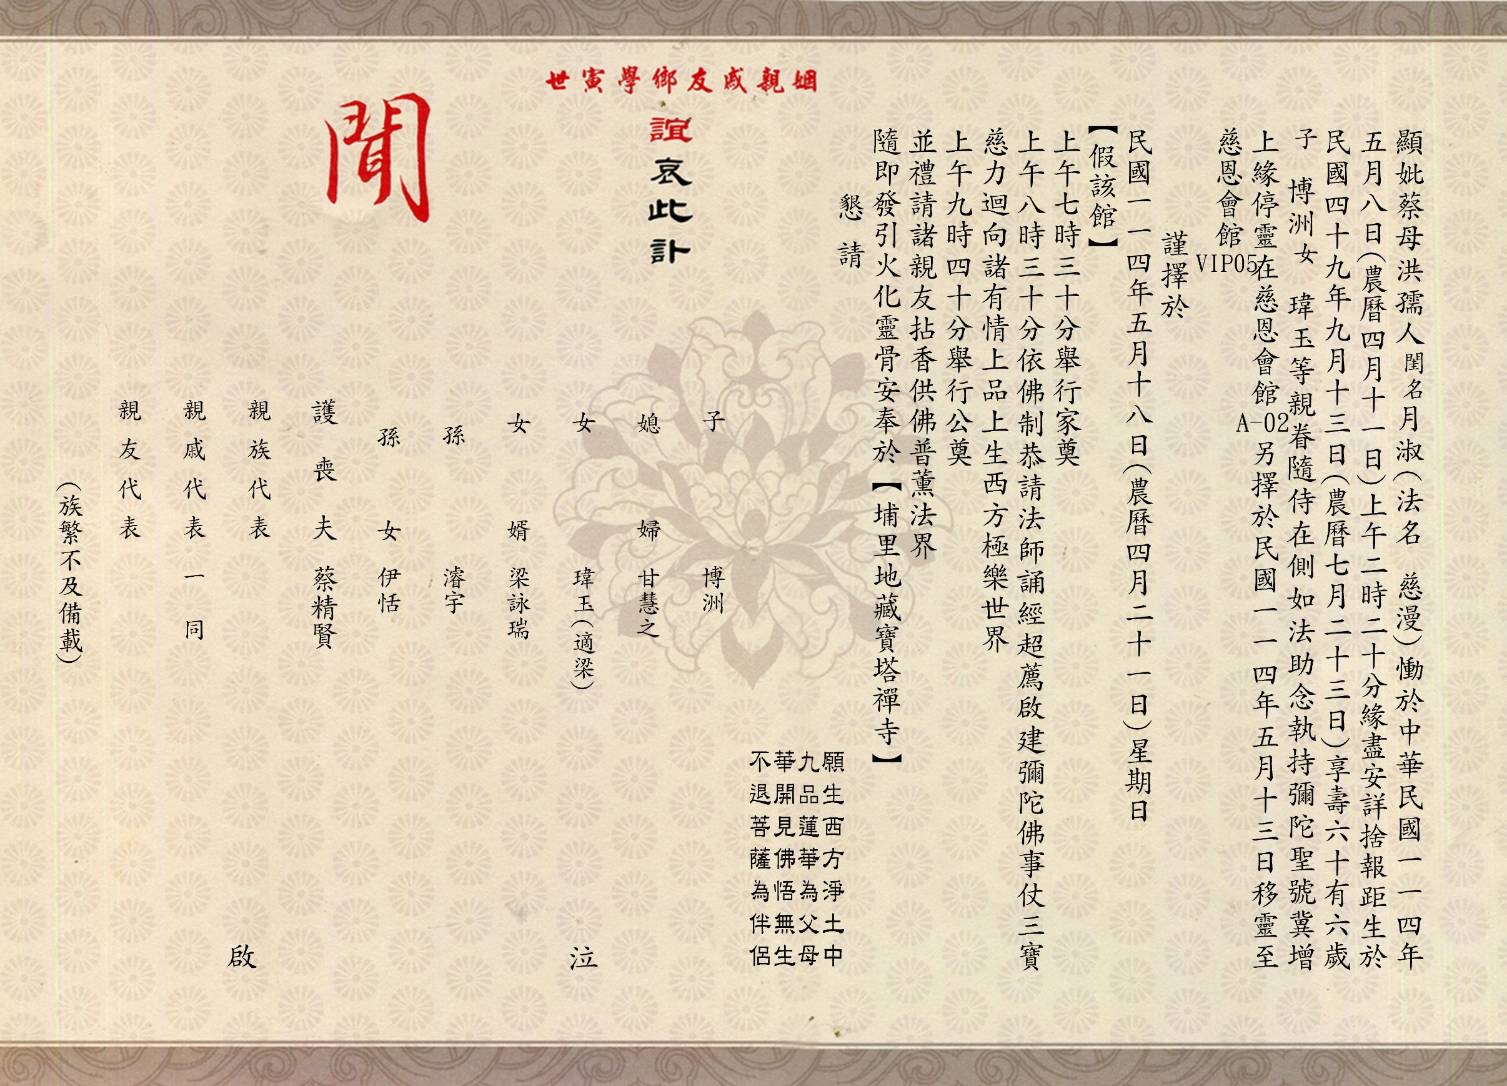 顯妣蔡母洪孺人閨名月淑(法名 慈漫)慟於中華民國一一四年
五月八日(農曆四月十一日)上午二時二十分緣盡安詳捨報距生於
民國四十九年九月十三日(農曆七月二十三日)享壽六十有六歲
子 博洲女 瑋玉等親眷隨侍在側如法助念執持彌陀聖號冀增
上緣停靈在慈恩會館A-02另擇於民國一一四年五月十三日移靈至
慈恩會館VIP05
謹擇於
民國一一四年五月十八日(農曆四月二十一日)星期日
【假該館】
上午七時三十分舉行家奠
上午八時三十分依佛制恭請法師誦經超薦啟建彌陀佛事仗三寶
慈力迴向諸有情上品上生西方極樂世界
上午九時四十分舉行公奠
並禮請諸親友拈香供佛普薰法界
隨即發引火化靈骨安奉於【埔里地藏寶塔禪寺】
懇請
願生西方淨土中
九品蓮華為父母
華開見佛悟無生
不退菩薩為伴侶
姻親戚友鄉學寅世
誼哀此訃
聞
子 博洲
媳婦 甘慧之
女 瑋玉(適梁)
女婿 梁詠瑞
孫 濬宇
孫女 伊恬
護喪夫 蔡精賢
泣
親族代表
親戚代表一同
親友代表
啟
(族繁不及備載)